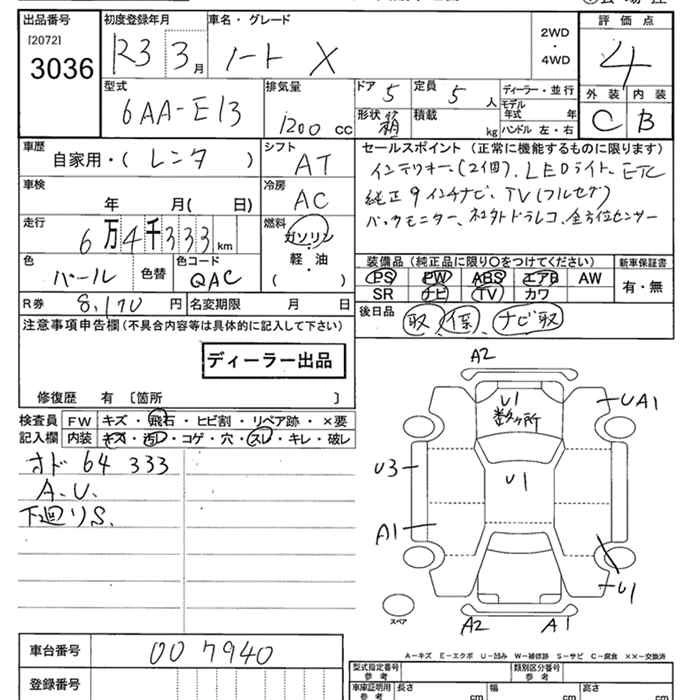 出品番号 初度登録年月 車名・グレード 評価点
[2072]
3036
R3 3月 ノート X
2WD
・
4WD
4
外装 内装
C B
型式 6AA-E13
排気量 1200 cc
ドア 5
定員 5 人
形状 箱
積載 kg
ディーラー・並行
モデル年式 年
ハンドル 左・右
車歴 自家用・(レンタ)
シフト AT
セールスポイント (正常に機能するものに限ります)
インテリキー(2個)、LEDライト、ETC
純正9インチナビ、TV(フルセグ)
バックモニター、社外ドラレコ、全方位センサー
車検 年 月( 日)
冷房 AC
走行 6万4千333km
燃料 ガソリン
軽・油
( )
色 パール 色替
色コード QAC
装備品 (純正品に限り〇をつけてください)
新車保証書
PS PW ABS エアB AW
SR ナビ TV カワ
有・無
R券 8,170円 名変期限 月 日
後日品 取、保、ナビ取
注意事項申告欄(不具合内容等は具体的に記入して下さい)
ディーラー出品
修復歴 有〔箇所 〕
検査員 FW キズ・飛石・ヒビ割・リペア跡・×要
記入欄 内装 キズ・汚レ・コゲ・穴・スレ・キレ・破レ
オド 64 333
A.U.
下廻りS.
A2
U1
数ヶ所
UA1
U3
U1
A1
U1
スペア
A2 A1
A-キズ E-エクボ U-凹み W-補修跡 S-サビ C-腐食 ××-交換済
車台番号 007940
登録番号
型式指定番号 参考
類別区分番号 参考
車庫証明用 参考 長さ cm 幅 cm 高さ cm